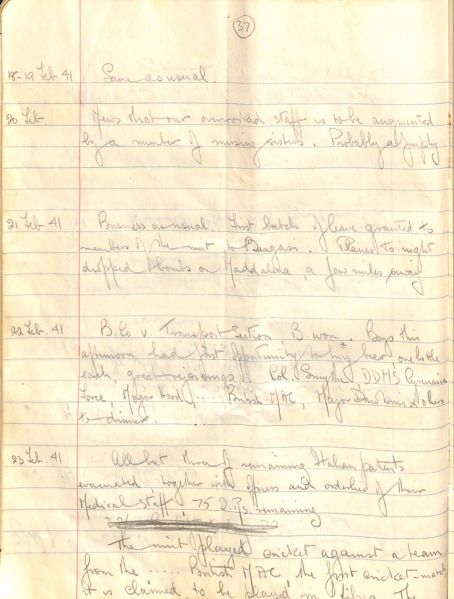 37
18-19 Feb 41 Same as usual.
20 Feb. News that our overworked staff is to be augmented
by a number of nursing sisters. Probably
21 Feb 41 Business as usual. First batch of leave granted to
members of the unit to Bengasi. Planes to-night
dropped bombs on Maddalena, a few miles away
22 Feb. 41 B. Co v. Transport Section B won. Boys this
afternoon had first opportunity to buy beer, one bottle
each, great rejoicings. Col. Smythe DDMS Cyrenaica
Force, Major ..... British MAC, Major & others
to dinner.
23 Feb. 41 All but three of remaining Italian patients
evacuated together with officers and orderlies of their
Medical Staff 75 remaining
The unit played cricket against a team
from the ..... British MAC the first cricket-match
it is claimed, to be played in Libya. The